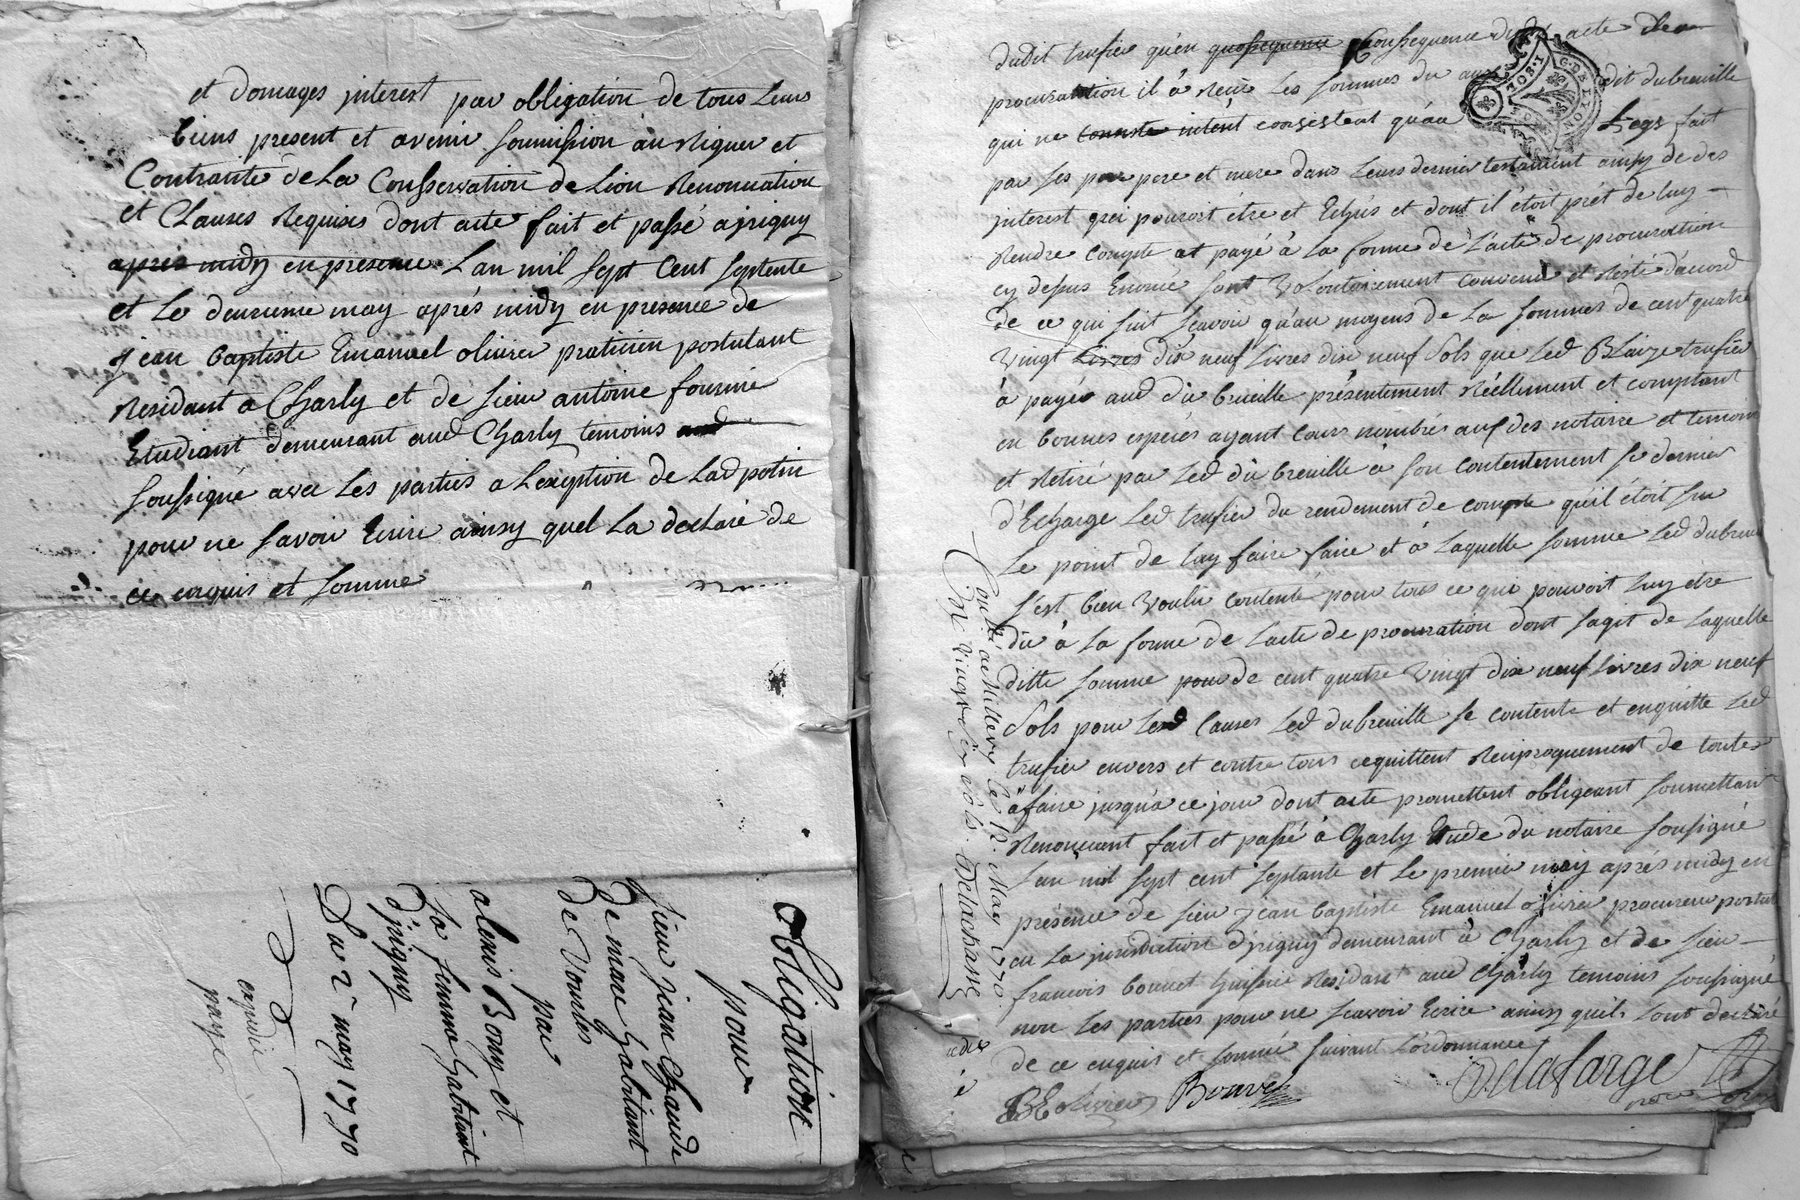 et domages interest par obligation de tous Leurs
biens present et avenir soumission au Rigueur et
Contrainte de La Conservation de Lion Renonciation
et Clauses Requises dont acte fait et passé a jrigny
apres midy en presence Lan mil sept Cent septente
et Le deuxieme may aprés midy en presence de
jean baptiste Emanuel olivier praticien postulant
Residant a Charly et de sieur antoine fournie
Etudiant demeurant aud Charly temoins
soussigné avec Les parties a Lexeption de Lad potin
pour ne savoir Ecrire ainsy quel La declaré de
ce enquis et somme
Obligation
pour
sieur jean Chaude
Demare habitant
de Vourles
par
alexis Bony et
sa femme habitant
D'jrigny
Du 2e may 1770
expedie
payé
dudit trufier qu'en quossequence Consequence dud acte de
procuration il a Reçu Les sommes du au dit dubreuille
qui ne consiste intent consestent qu'au Legs fait
par ses par pere et mere dans Leurs dernier testament ainsy de des
interest qui pouroit être et Echûs et dont il étoit prét de luy
Rendre Compte et payé à La forme de L'acte de procuration
cy depus Enoncé sont Volontairement convenu et Résté d'acord
de ce qui suit scavoir qu'au moyens de La sommes de cent quatre
Vingt Livres dix neuf Livres dix neuf sols que Led Blaize trufier
à payér aud du breuille présentement Réellement et comptant
en bonnes espéces ayant Cours nombrés auf des notaire et temoins
et Retiré par Led du breuille à son Contentement se dernier
d'Echarge Led trufier du rendement de compte qu'il étoit sur
Le point de luy faire faire et à Laquelle somme Led dubreuille
s'est bien Voulu contenté pour tous ce qui pouvoit Luy etre
dû à La forme de Lacte de procuration dont sagit de Laquelle
ditte somme pour de cent quatre Vingt dix neuf Livres dix neuf
sols pour Lesd Causes Led dubreuille se contente et enquitte Led
trufier envers et contre tous cequittent Reciproquement de toutes
àfaire jusqua ce jour dont acte promettent obligeant soumettant
Renoncant fait et passé à Charly Etude du notaire soussigné
Lan mil sept cent septante et Le premier may aprés midy en
présence de sieur jean baptiste Emanuel olivier procureur postulant
en La jurisdiction d'jrigny demeurant à Charly et de sieur
francois bonnet huissier Residant aud Charly temoins soussigné
non Les parties pour ne scavoir Ecrire ainsy quils Lont declaré
de ce enquis et sommé suivant L'ordonnance
Delafarge
JBEolivier Bonnet
Conllé a Millery le 12. May 1770.
Rx Vingt six sols. Delachasse
G. DE LYON